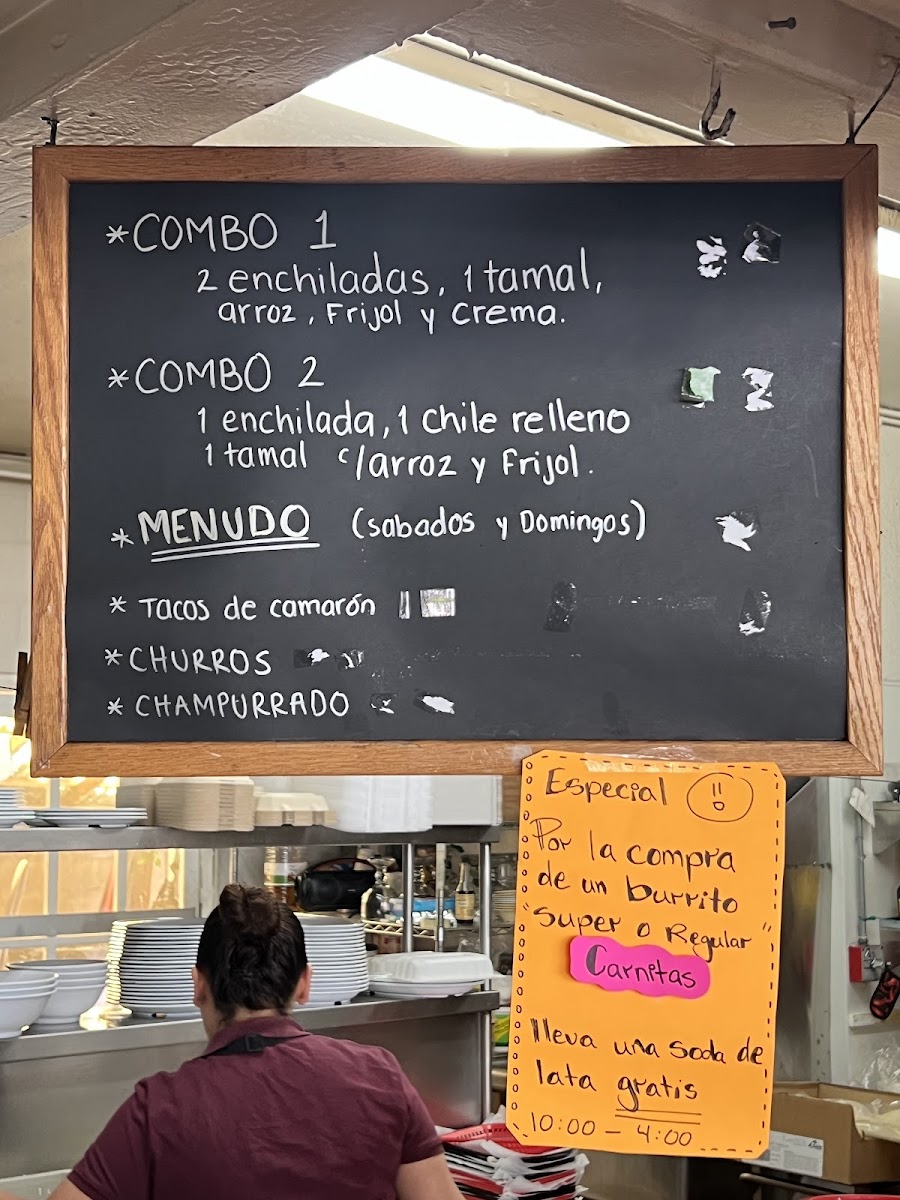 *COMBO 1
2 enchiladas, 1 tamal,
arroz, Frijol y Crema.
*COMBO 2
1 enchilada, 1 Chile relleno
1 tamal c/arroz y Frijol.
*MENUDO (sabados y Domingos)
* Tacos de camarón
*CHURROS
* CHAMPURRADO
Especial
Por la compra
de un burrito
"Super o Regular"
Carnitas
lleva una soda de
lata gratis
10:00 - 4:00